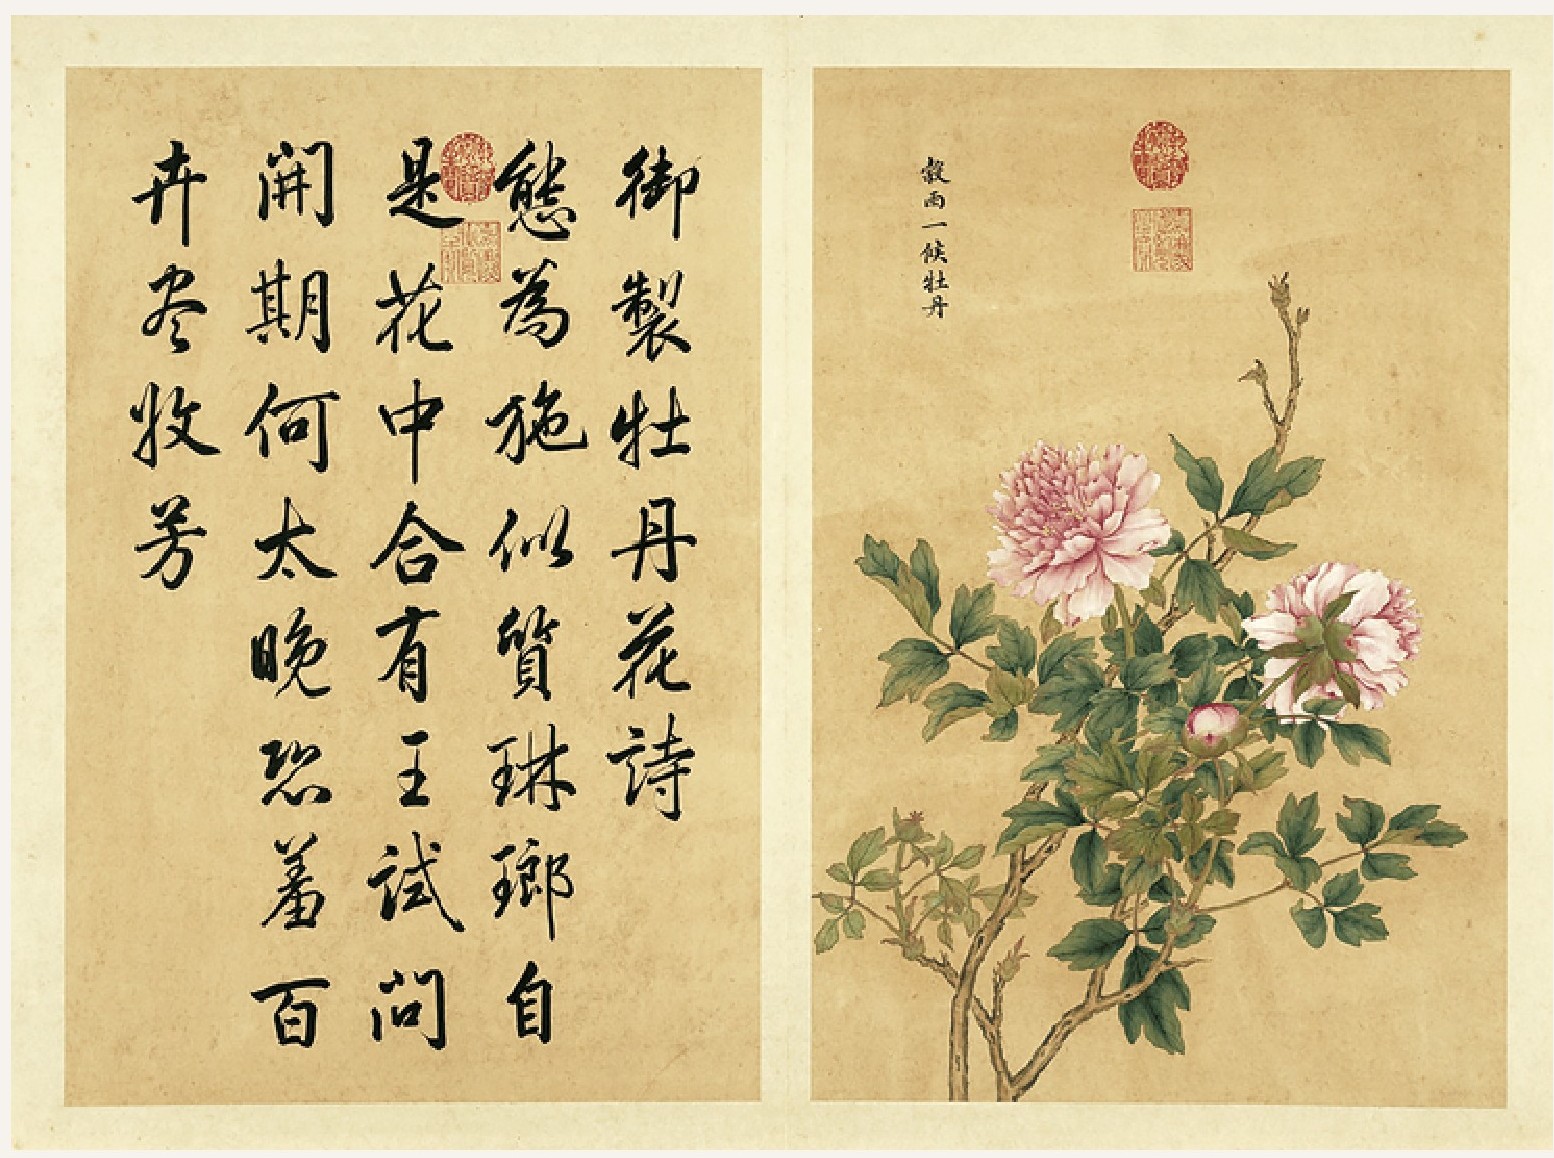 穀雨一候牡丹
御製牡丹花詩
態為施似質琳瑯自
是花中合有王試問
開期何太晚恐羞百
卉尽收芳